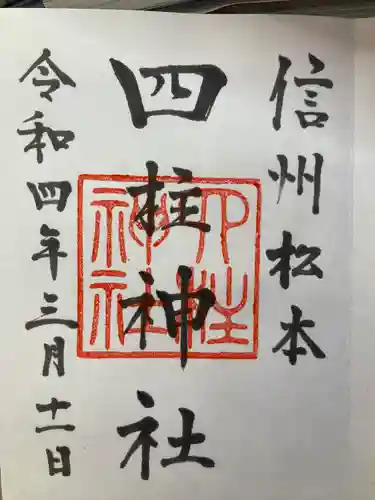 信州松本
四柱神社
令和四年三月十一日
四柱神社